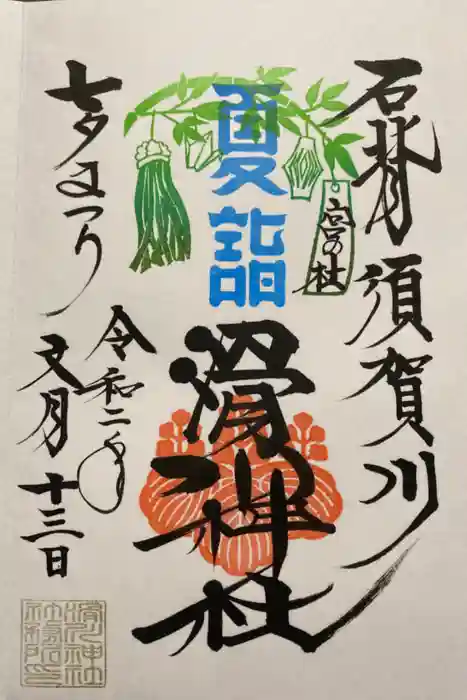 石背 須賀川
夏詣
宮の杜
滑川神社
七夕まつり
令和二年
文月十三日
滑川神社
社務所印